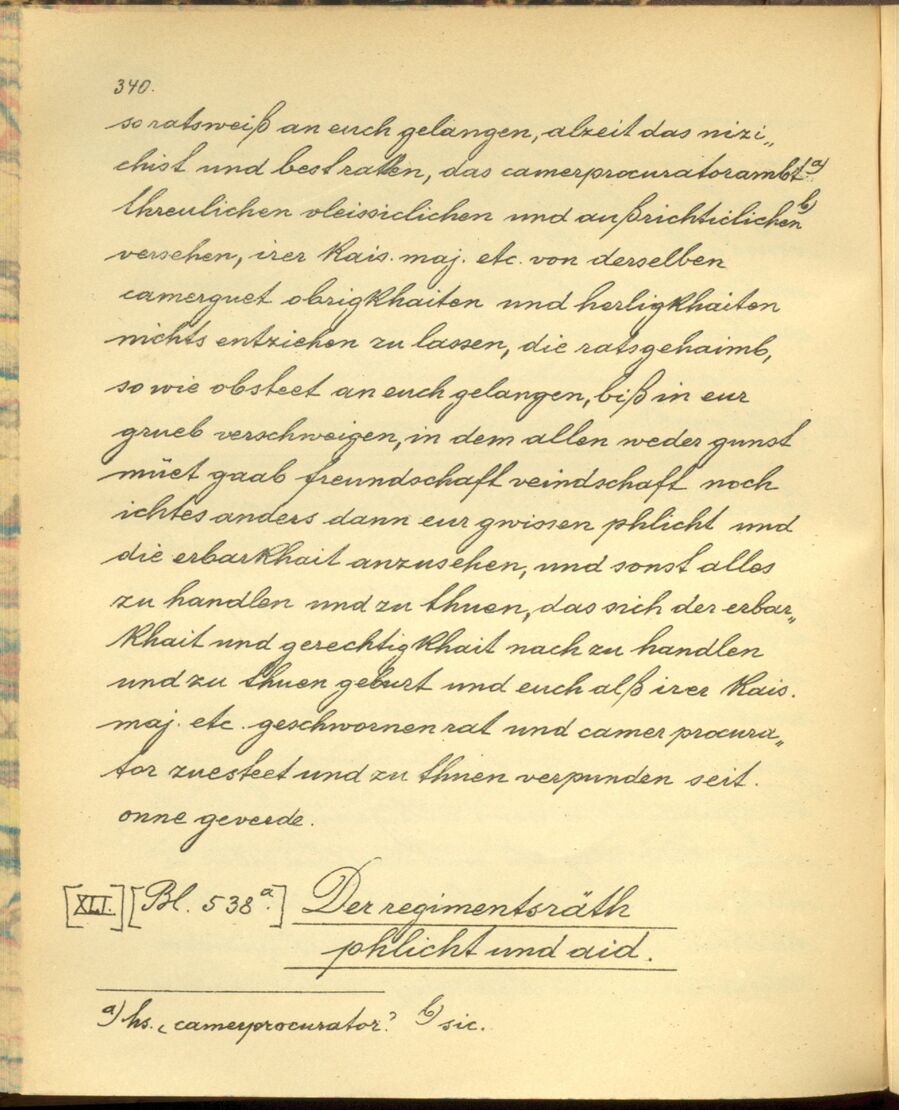 340.
so ratsweiß an euch gelangen, alzeit das nizi„
chist und best raten, das camerprocuratorambt a)
threulichen vleissiclichen und außrichticlichen b)
versehen, irer kais. maj. etc. von derselben
camerguet obrigkhaiten und herligkhaiten
nichts entziehen zu lassen, die ratsgehaimb,
so wie obsteet an euch gelangen, biß in eur
grueb verschweigen, in dem allen weder gunst
müet gaab freundschaft veindschaft noch
ichtes anders dann eur gwissen phlicht und
die erbarkhait anzusehen, und sonst alles
zu handlen und zu thuen, das sich der erbar„
khait und gerechtigkhait nach zu handlen
und zu thuen geburt und euch alß irer kais.
maj. etc. geschwornen rat und camer procura„
tor zuesteet und zu thuen verpunden seit.
onne geverde.
[XLI.] [Bl. 538a.] Der regimentsräth
phlicht und aid.
a) hs. ‚camerprocurator? b) sic.